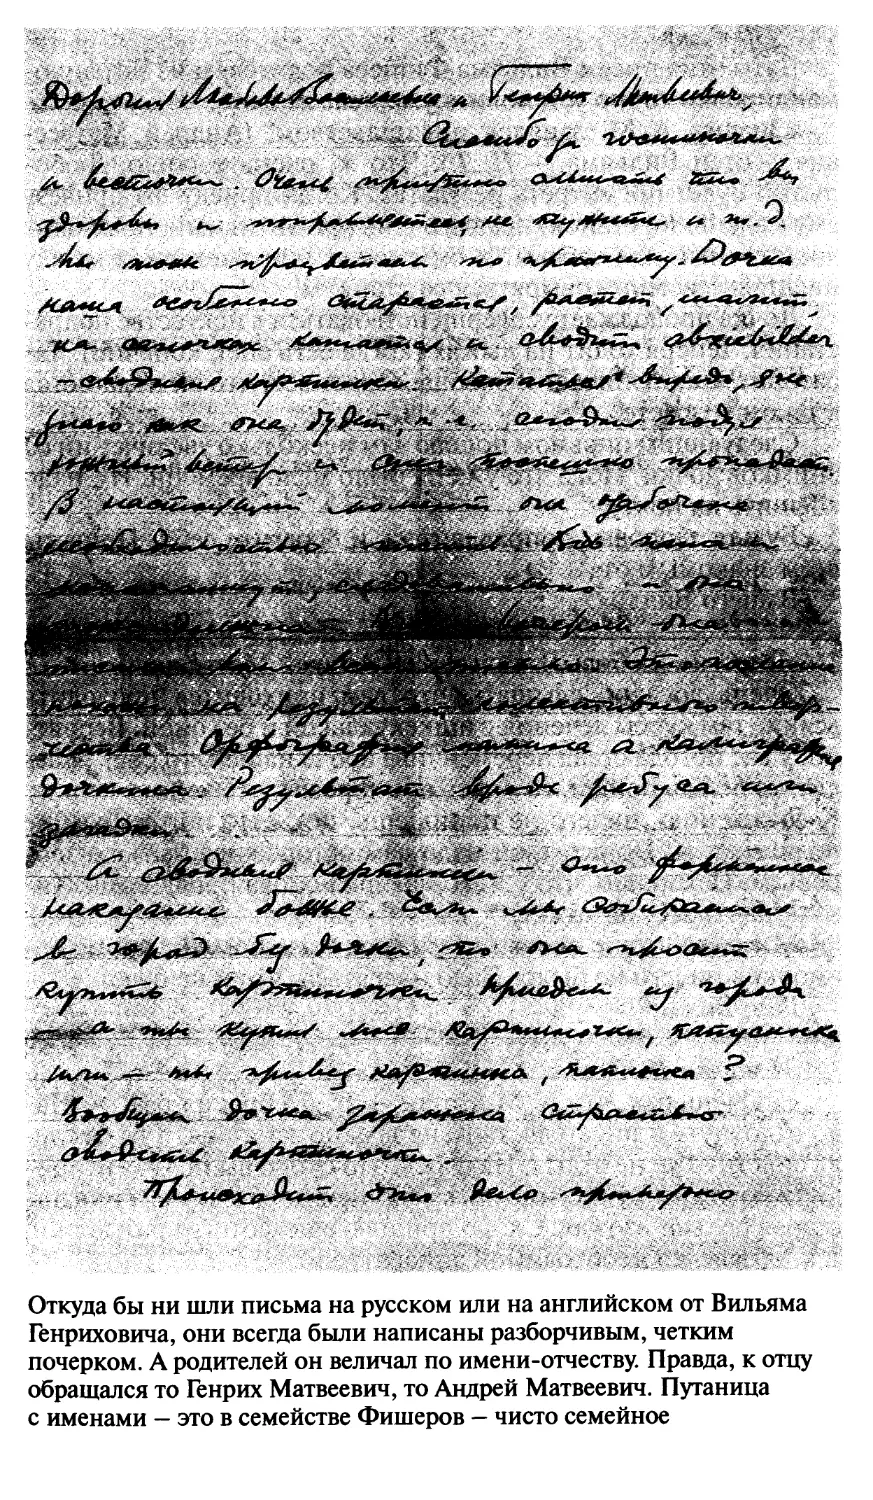 Дорогие Любовь Васильевна и Генрих Матвеевич,
Спасибо за гостиночки
и весточки. Очень приятно слышать что вы
здоровы и поправляетесь, не тужите и т.д.
Мы тоже процветаем по прежнему. Дочка
наша особенно старается, растет, шалит,
на саночках катается и сводит abziebilder
– сводныя картинки. Кататься впредь, я не
знаю как она будет, т.к. сегодня подул
южный ветер и снег поспешно пропадает.
В настоящий момент она озабочена
необходимостью
она
вечером она
похож на результат коллективного твор-
чества. Орфография мамина а калиграфия
дочкина. Результат вроде ребуса или
загадки.
А сводныя картинки – это форменное
наказание божье. Если мы собираемся
в город без дочки, то она просит
купить картиночки. Приедем из города
– а ты купил мне картиночки, папусинька
или – ты привез картинка, папинка?
Вообщем дочка заражена страстью
сводить картиночки.
Происходит это дело примерно
Откуда бы ни шли письма на русском или на английском от Вильяма
Генриховича, они всегда были написаны разборчивым, четким
почерком. А родителей он величал по имени-отчеству. Правда, к отцу
обращался то Генрих Матвеевич, то Андрей Матвеевич. Путаница
с именами – это в семействе Фишеров – чисто семейное